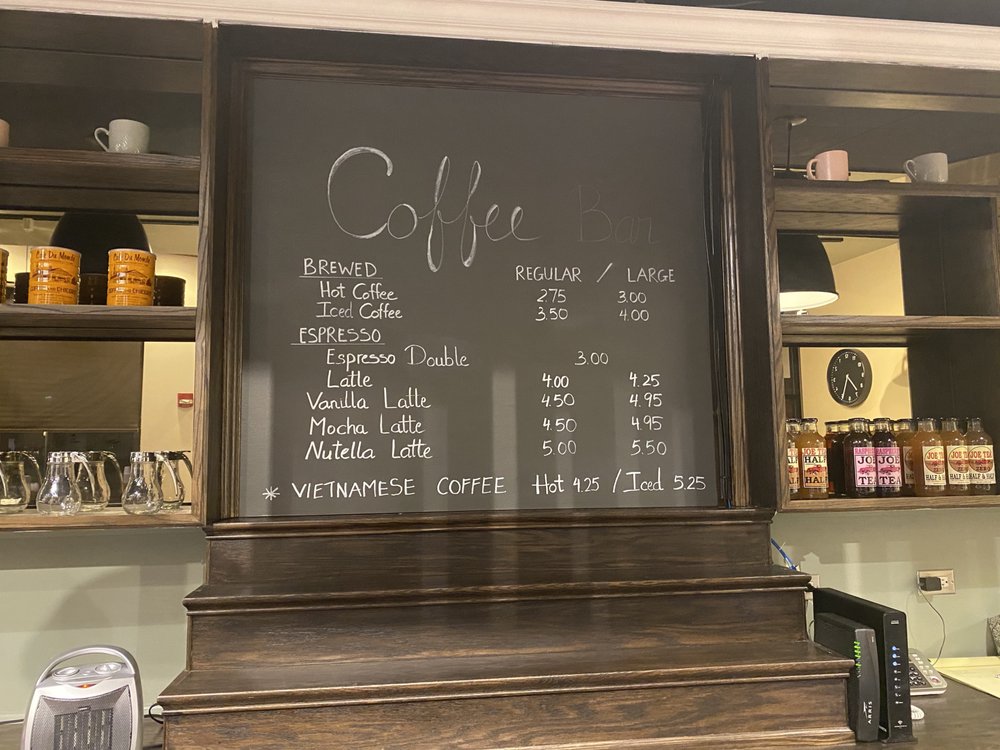 Coffee Bar
BREWED REGULAR / LARGE
Hot Coffee 2.75 3.00
Iced Coffee 3.50 4.00
ESPRESSO
Espresso Double 3.00
Latte 4.00 4.25
Vanilla Latte 4.50 4.95
Mocha Latte 4.50 4.95
Nutella Latte 5.00 5.50
* VIETNAMESE COFFEE Hot 4.25 / Iced 5.25
Du Monde
RASPBERRY
JOE
TEA
JOE TEA
HALF &
JOE TEA
ZERO
HALF &
ARRIS